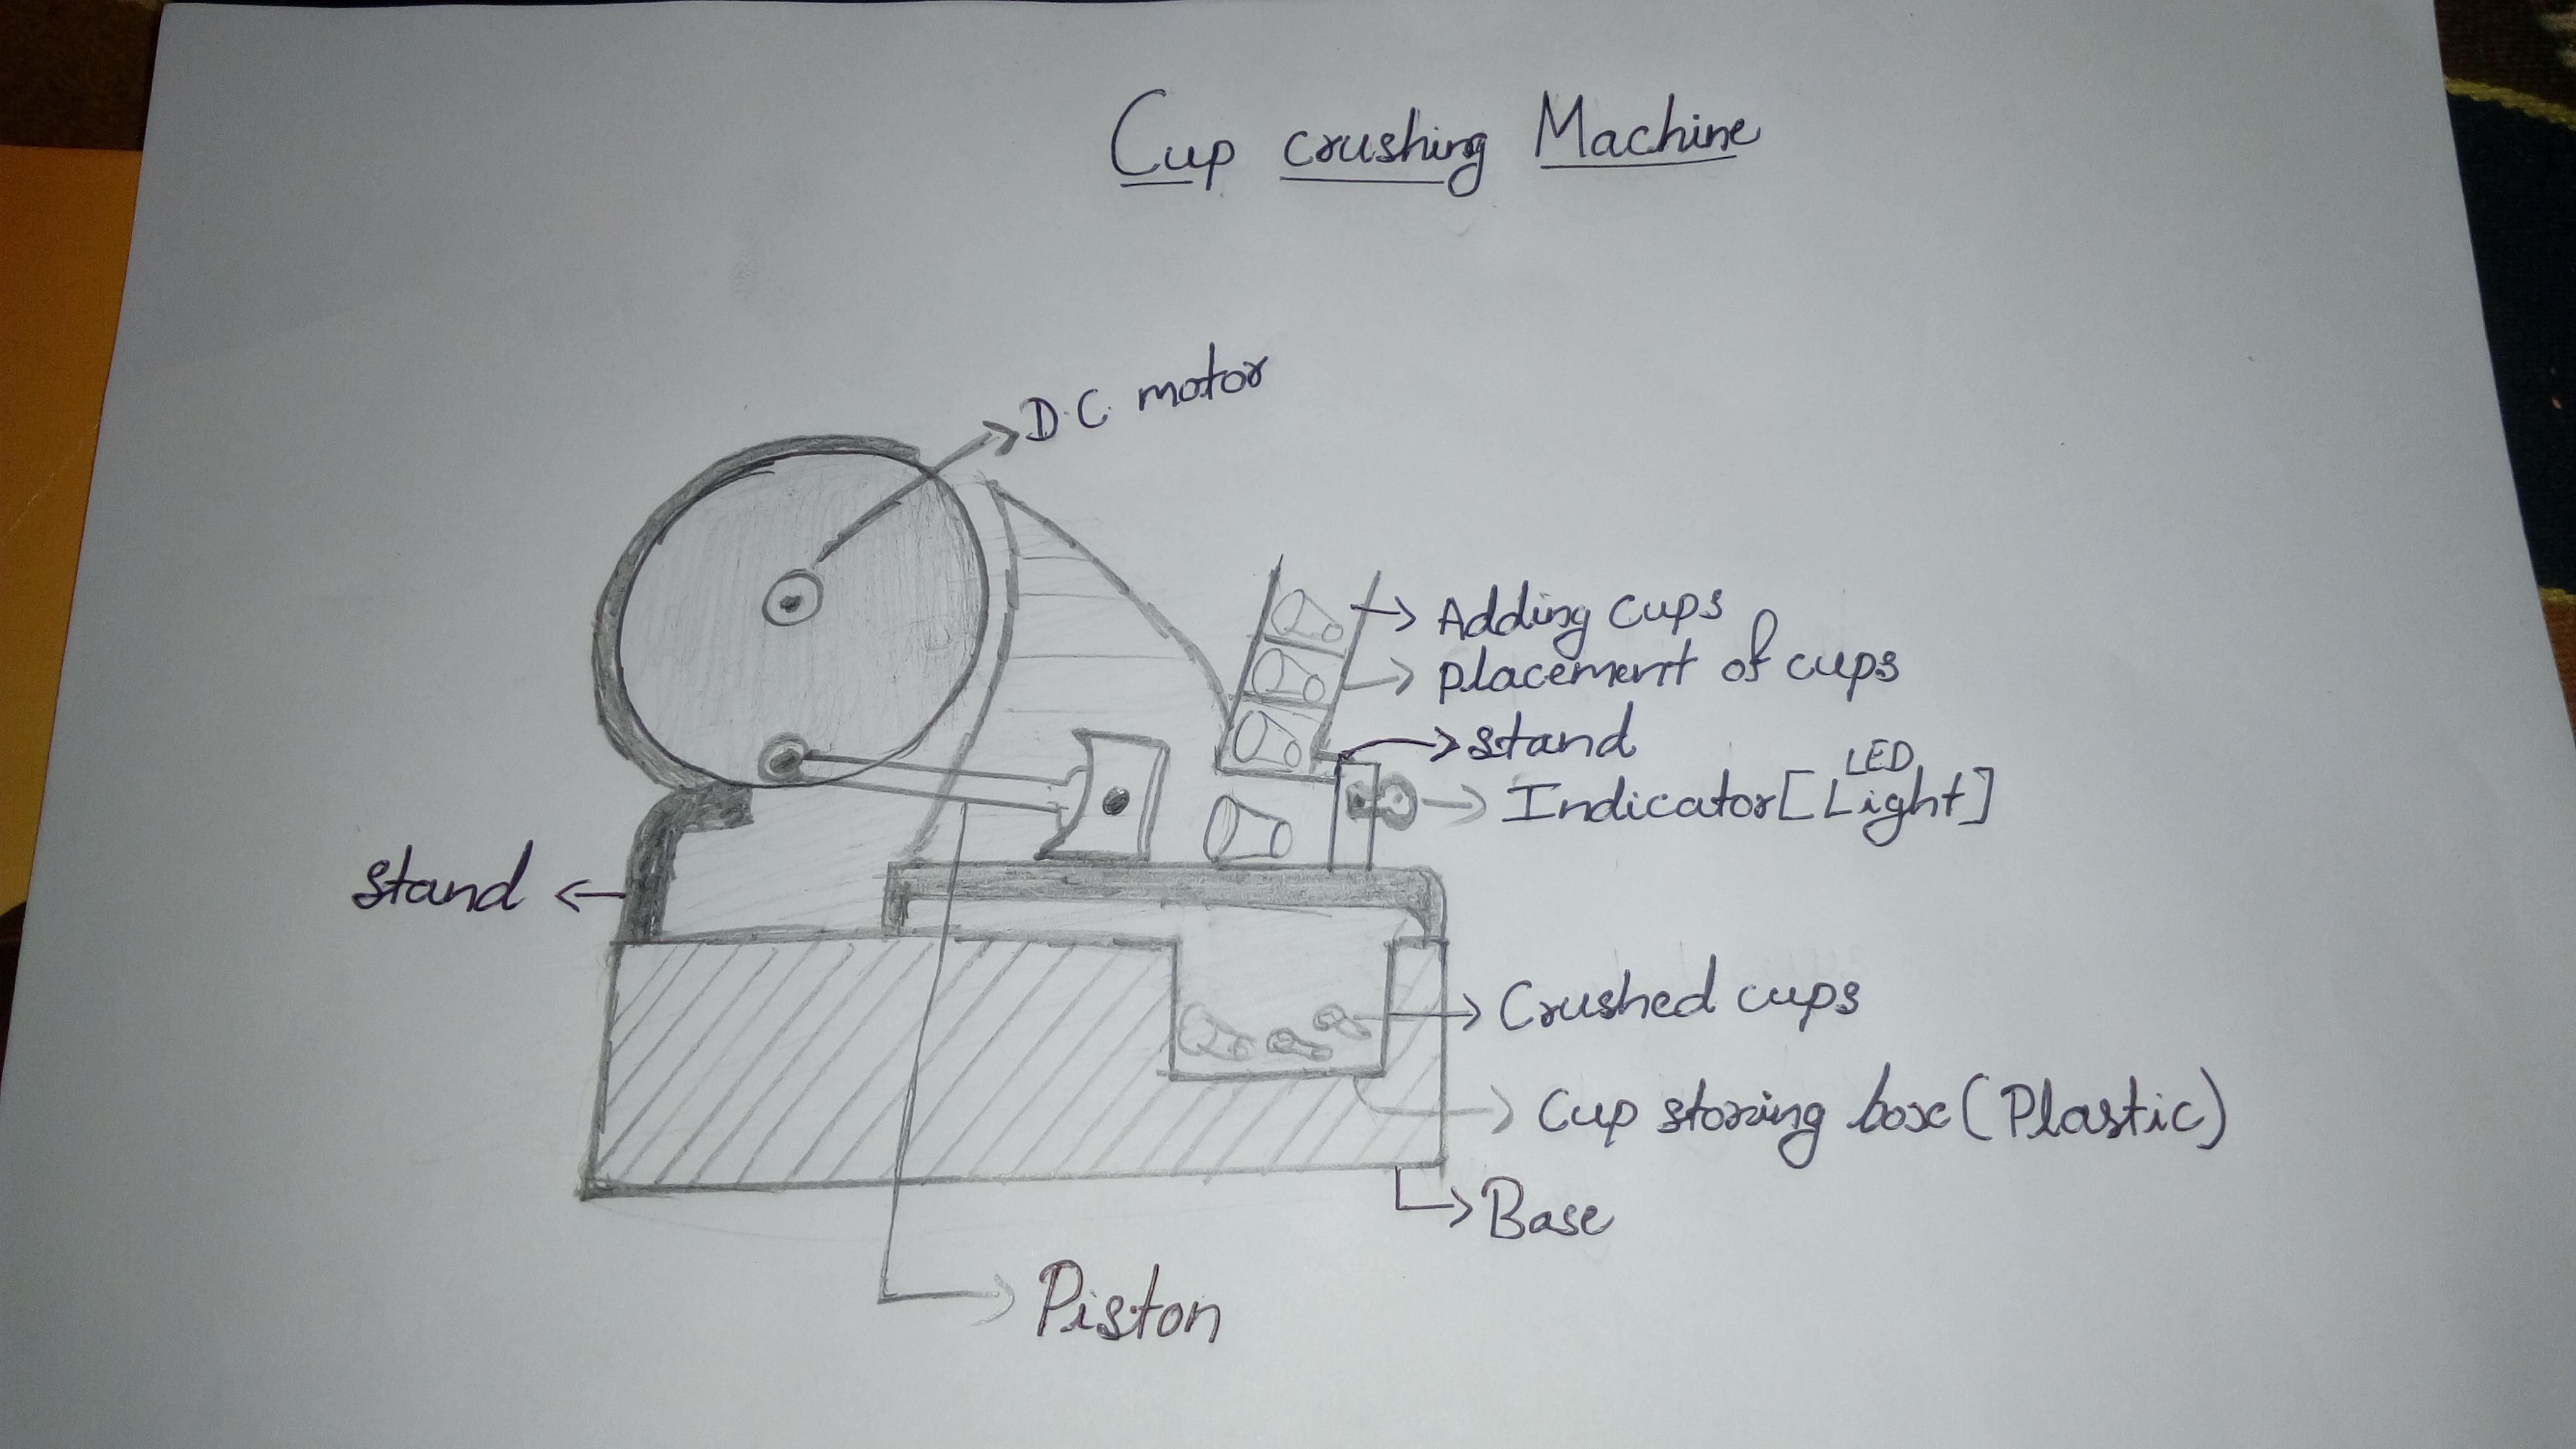 Cup crushing Machine
D.C. motor
Adding cups
placement of cups
stand
LED
Indicator[Light]
stand
Crushed cups
Cup storing box (Plastic)
Base
Piston